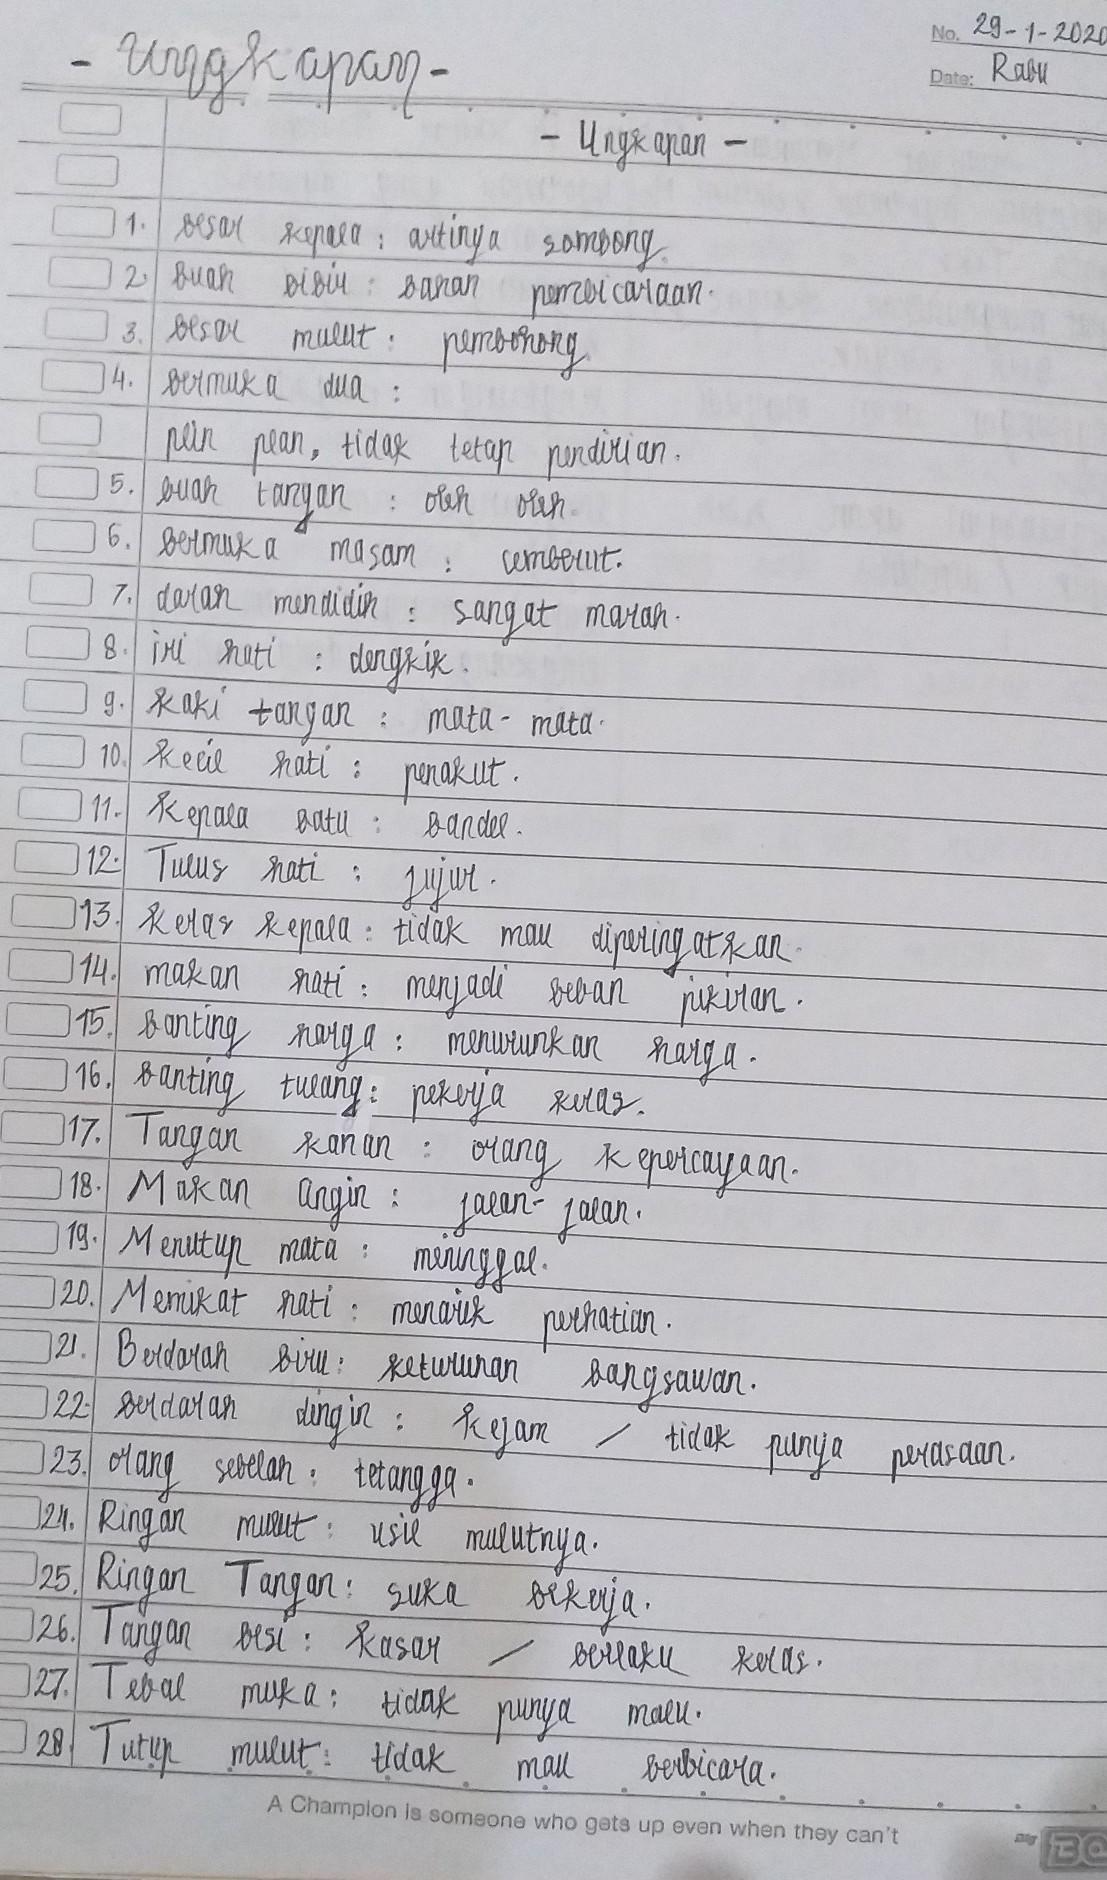 - Ungkapan -
No. 29-1-2020
Date: Rabu
- Ungkapan -
1. besar kepala : artinya sombong.
2. buah bibir : bahan pembicaraan.
3. besar mulut : pembohong
4. bermuka dua :
plin plan, tidak tetap pendirian.
5. buah tangan : oleh oleh.
6. bermuka masam : cemberut.
7. darah mendidih : sangat marah.
8. iri hati : dengkik.
9. kaki tangan : mata-mata.
10. kecil hati : penakut.
11. Kepala batu : bandel.
12. Tulus hati : jujur.
13. keras kepala : tidak mau diperingatkan.
14. makan hati : menjadi beban pikiran.
15. banting harga : menurunkan harga.
16. banting tulang : pekerja keras.
17. Tangan kanan : orang kepercayaan.
18. Makan angin : jalan-jalan.
19. Menutup mata : meninggal.
20. Memikat hati : menarik perhatian.
21. Berdarah biru : keturunan bangsawan.
22. berdarah dingin : kejam / tidak punya perasaan.
23. orang sebelah : tetangga.
24. Ringan mulut : usil mulutnya.
25. Ringan Tangan : suka bekerja.
26. Tangan besi : kasar / berlaku keras.
27. Tebal muka : tidak punya malu.
28. Tutup mulut : tidak mau berbicara.
A Champion is someone who gets up even when they can't